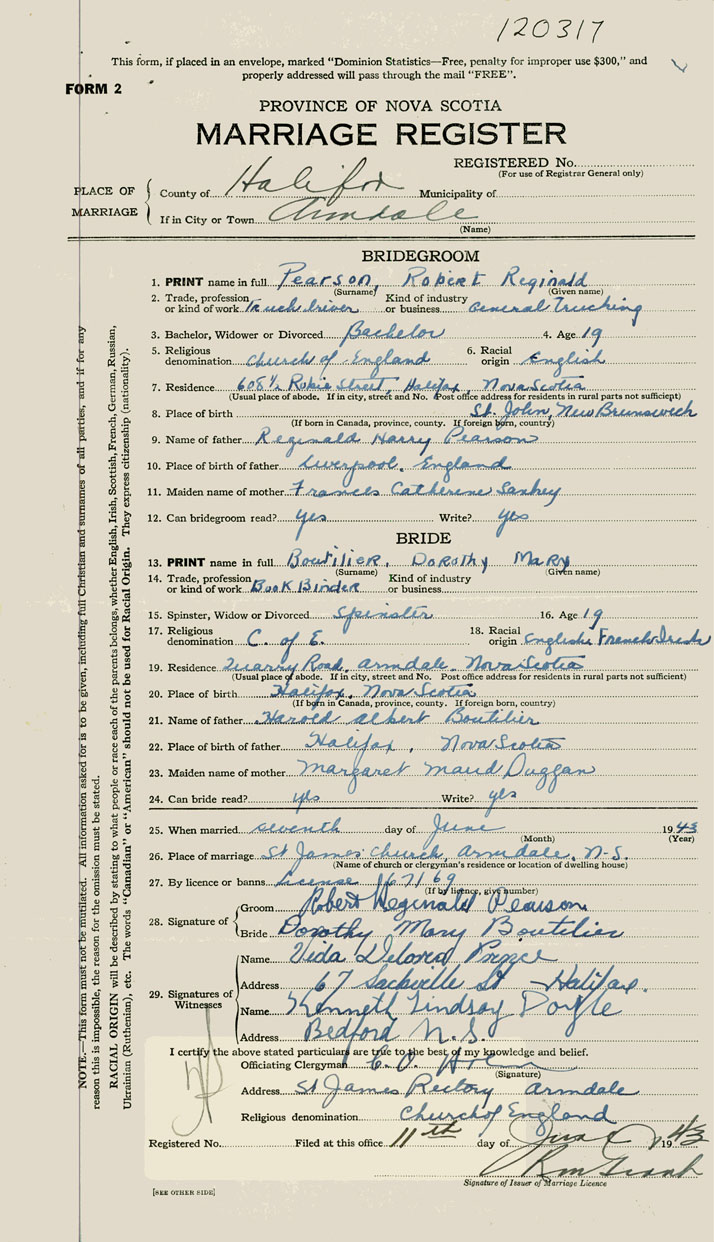 120317
This form, if placed in an envelope, marked "Dominion Statistics—Free, penalty for improper use $300," and
properly addressed will pass through the mail "FREE".
FORM 2
PROVINCE OF NOVA SCOTIA
MARRIAGE REGISTER
REGISTERED No.
(For use of Registrar General only)
PLACE OF MARRIAGE
County of Halifax Municipality of
If in City or Town Armdale
(Name)
BRIDEGROOM
1. PRINT name in full Pearson, Robert Reginald
(Surname) (Given name)
2. Trade, profession or kind of work Truck driver Kind of industry or business General Trucking
3. Bachelor, Widower or Divorced Bachelor 4. Age 19
5. Religious denomination Church of England 6. Racial origin English
7. Residence 608½ Robie Street, Halifax, Nova Scotia
(Usual place of abode. If in city, street and No. Post office address for residents in rural parts not sufficient)
8. Place of birth St. John, New Brunswick
(If born in Canada, province, county. If foreign born, country)
9. Name of father Reginald Harry Pearson
10. Place of birth of father Liverpool, England
11. Maiden name of mother Frances Catherine Sankey
12. Can bridegroom read? yes Write? yes
BRIDE
13. PRINT name in full Boutilier, Dorothy Mary
(Surname) (Given name)
14. Trade, profession or kind of work Book Binder Kind of industry or business
15. Spinster, Widow or Divorced Spinster 16. Age 19
17. Religious denomination C. of E. 18. Racial origin English French Irish
19. Residence Quarry Road, Armdale, Nova Scotia
(Usual place of abode. If in city, street and No. Post office address for residents in rural parts not sufficient)
20. Place of birth Halifax, Nova Scotia
(If born in Canada, province, county. If foreign born, country)
21. Name of father Harold Albert Boutilier
22. Place of birth of father Halifax, Nova Scotia
23. Maiden name of mother Margaret Maud Duggan
24. Can bride read? yes Write? yes
25. When married seventh day of June 1943
(Month) (Year)
26. Place of marriage St James' Church, Armdale, N.S.
(Name of church or clergyman's residence or location of dwelling house)
27. By licence or banns License 167169
(If by licence, give number)
28. Signature of
Groom Robert Reginald Pearson
Bride Dorothy Mary Boutilier
29. Signatures of Witnesses
Name Vida Delores Prince
Address 67 Sackville St Halifax.
Name Kenneth Lindsay Doyle
Address Bedford N.S.
I certify the above stated particulars are true to the best of my knowledge and belief.
Officiating Clergyman C. O.
(Signature)
Address St James Rectory Armdale
Religious denomination Church of England
Registered No. Filed at this office 11th day of June 1943
Signature of Issuer of Marriage Licence
[SEE OTHER SIDE]
NOTE.—This form must not be mutilated. All information asked for is to be given, including full Christian and surnames of all parties, and if for any
reason this is impossible, the reason for the omission must be stated.
RACIAL ORIGIN will be described by stating to what people or race each of the parents belongs, whether English, Irish, Scottish, French, German, Russian,
Ukrainian (Ruthenian), etc. The words "Canadian" or "American" should not be used for Racial Origin. They express citizenship (nationality).